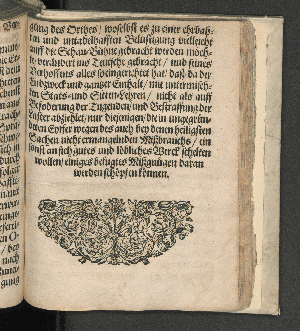 gung des Orthes / woselbst es zu einer ehrbah-
ren und untadelhafften Belustigung vielleicht
auff die Schau-Bühne gebracht werden möch-
te verändert ins Teutsche gebracht / und seines
Verhoffens alles so eingerichtet hat / daß da der
Endzweck und gantzer Einhalt / mit untermisch-
ten Staats- und Sitten-Lehren / nicht als auff
Beförderung der Tugenden / und Bestraffung der
Laster abziehlet / nur diejenigen / die in ungegrün-
deten Eyffer wegen des auch bey denen heiligsten
Sachen nicht ermangelnden Mißbrauchs / ein
sonst an sich gutes und löbliches Werck schelten
wollen / einiges befugtes Mißgnügen daran
werden schöpffen können.